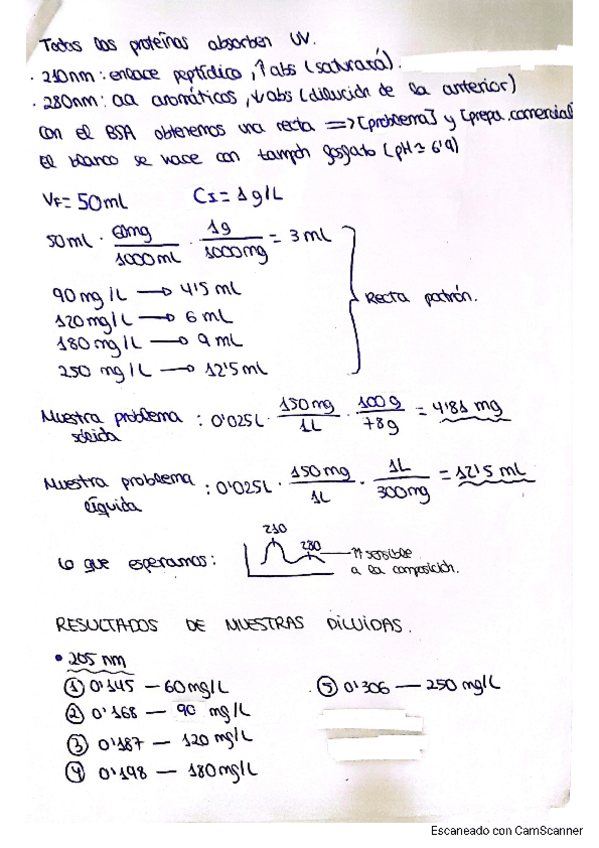 Todas las proteínas absorben UV.
· 210nm: enlace peptídico, ↑abs (saturará).
· 280nm: aa aromáticos, ↓abs (dilución de la anterior)
Con el BSA obtenemos una recta => [problema] y [prepa. comercial
El blanco se hace con tampón fosfato (pH≈ 6'9)
VF= 50ml CI= 1g/L
50ml · 60mg/1000ml · 1g/1000mg = 3 ml
90 mg/L → 4'5 ml
120mg/L → 6 ml
180mg/L → 9 ml
250 mg/L → 12'5 ml
Recta patrón.
Muestra problema sólida : 0'025L · 150mg/1L · 100g/78g = 4'81 mg
Muestra problema líquida : 0'025L · 150mg/1L · 1L/300mg = 12'5 ml
210
280
Lo que esperamos: ↑↑ sensible
a la composición.
RESULTADOS DE MUESTRAS DILUIDAS.
• 205 nm
① 0'145 — 60mg/L
② 0'168 — 90 mg/L
③ 0'187 — 120 mg/L
④ 0'198 — 180mg/L
⑤ 0'306 — 250 mg/L
Escaneado con CamScanner